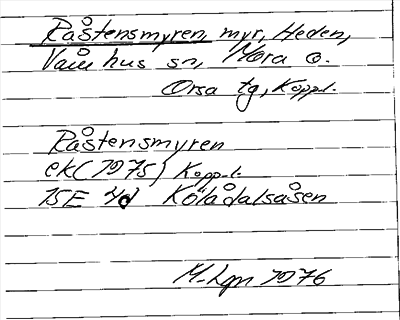 Råstensmyren, myr, Heden,
Våmhus sn, Mora o.
Orsa tg, Koppl.
Råstensmyren
ek (1975) Koppl.
15E Kölådalsåsen
M-Lgn 1976